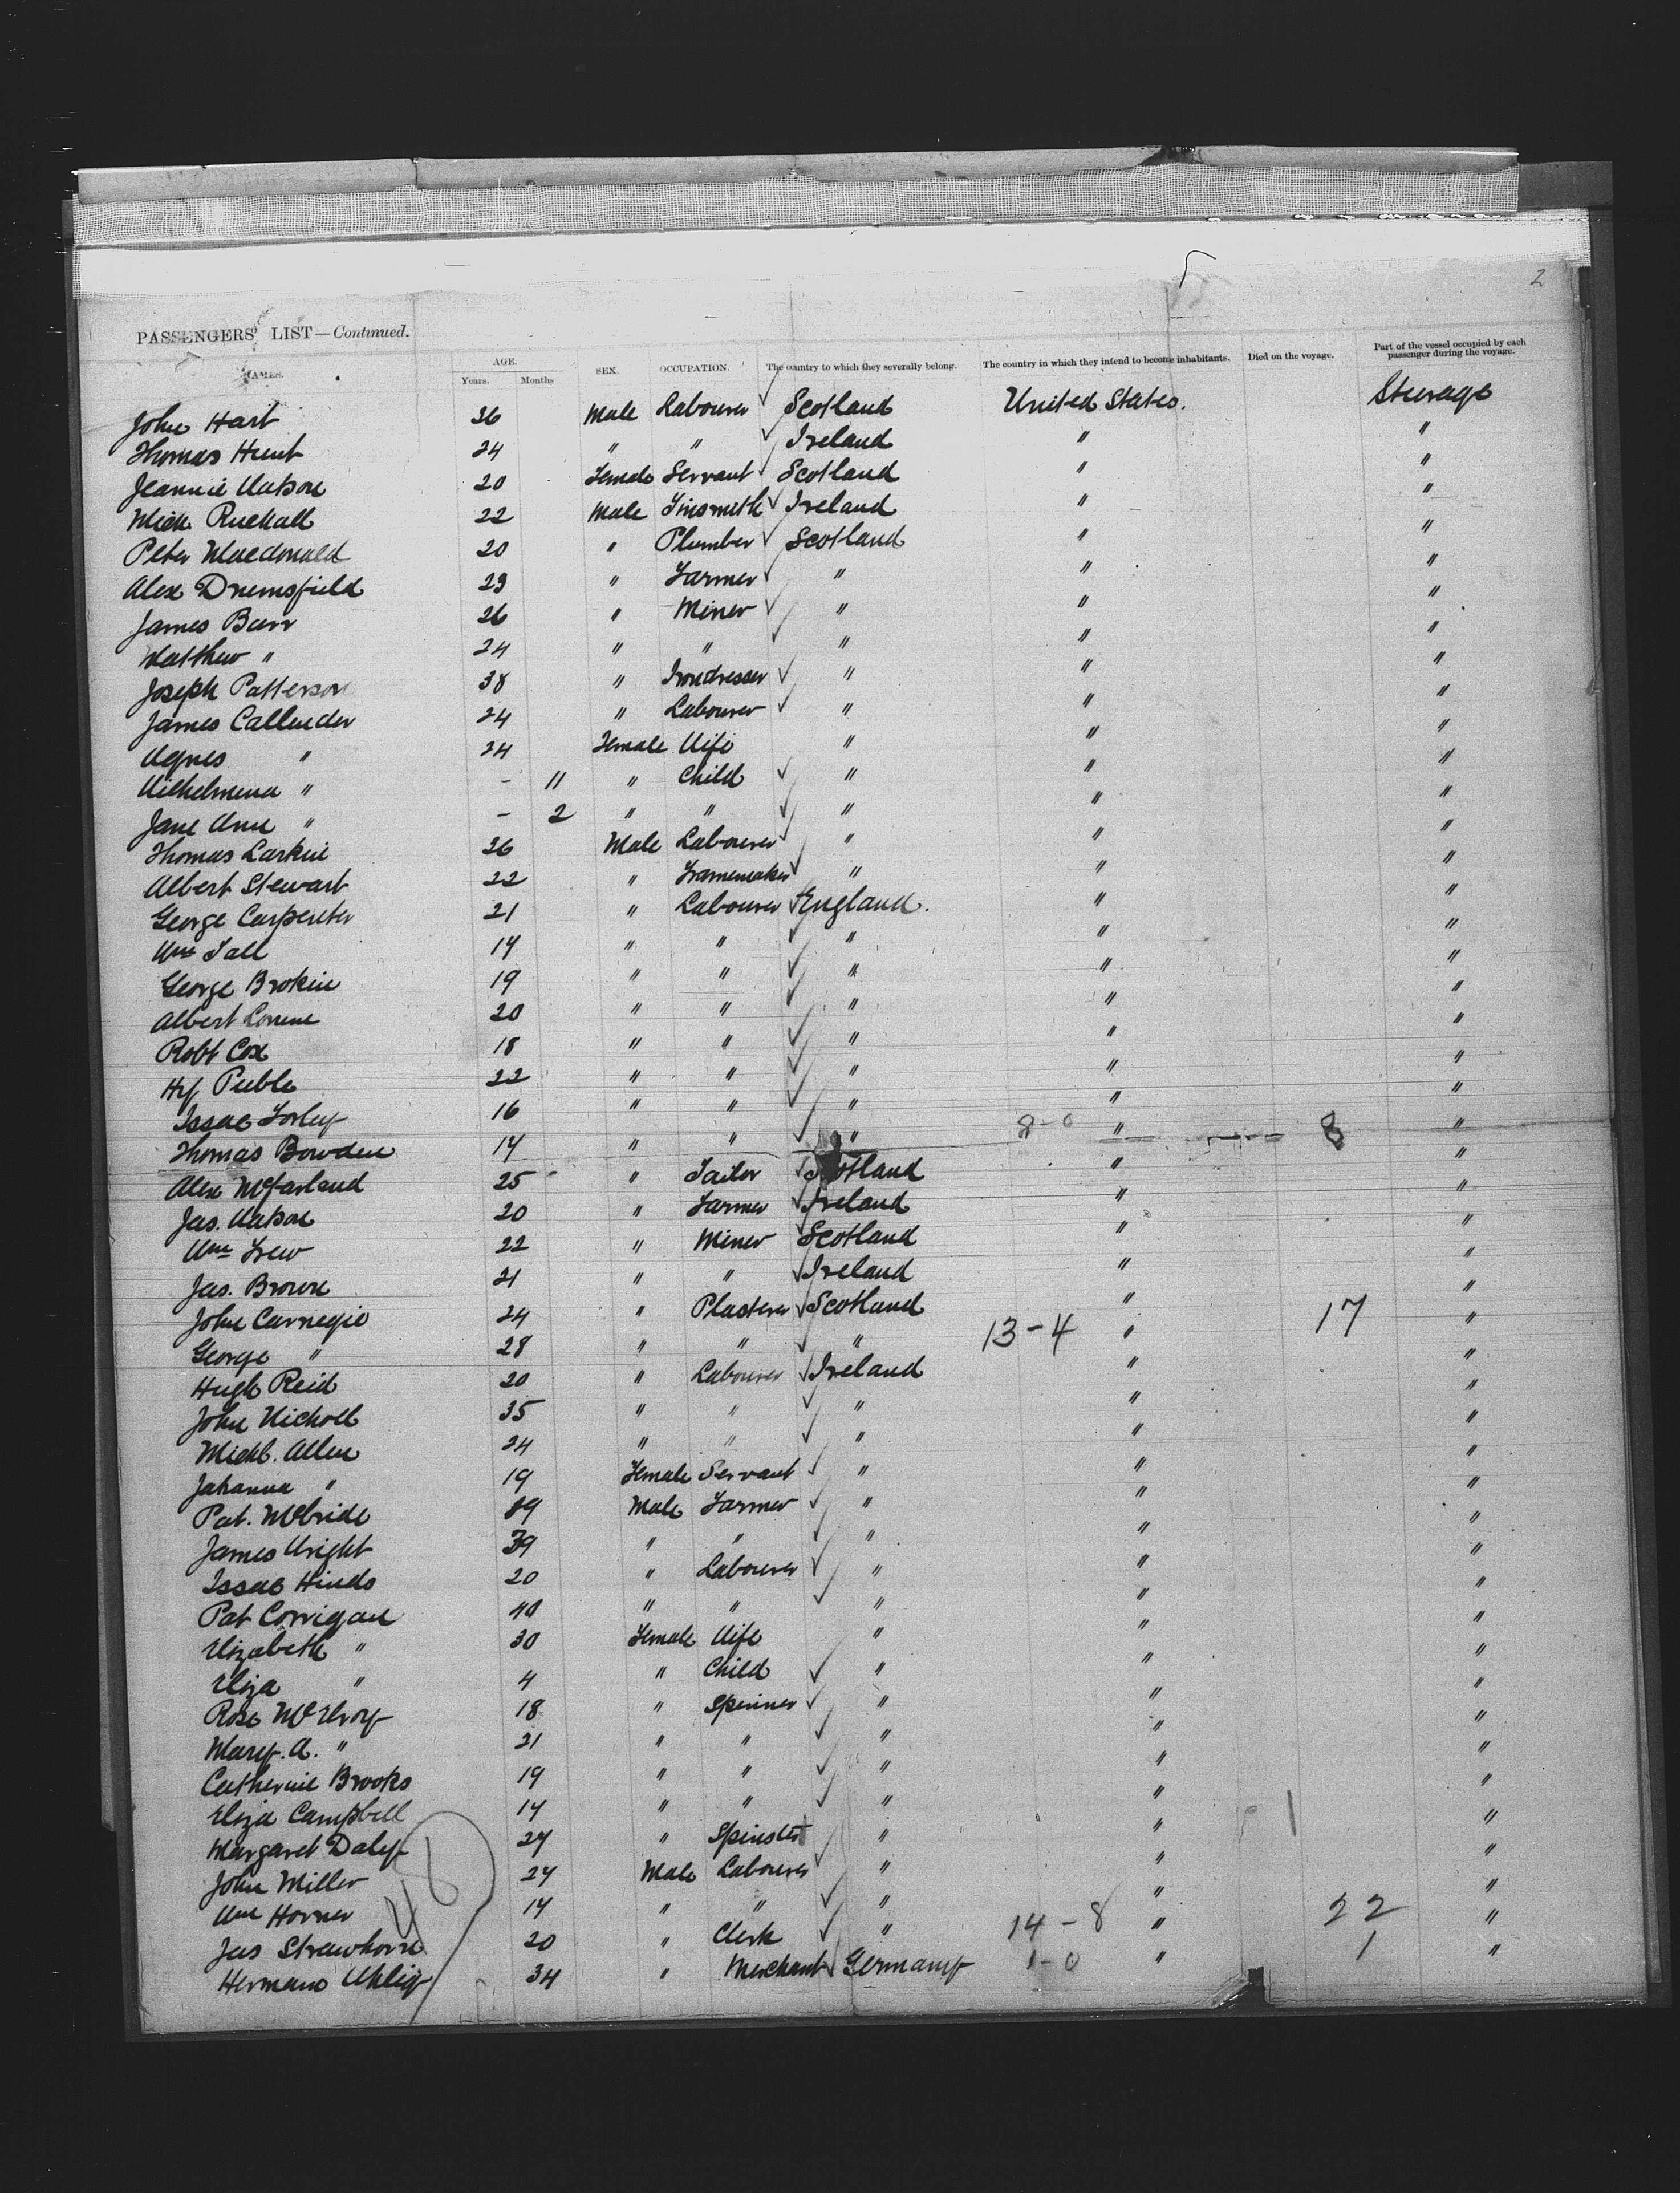 2
PASSENGERS' LIST—Continued.
NAMES. AGE. Years. Months SEX. OCCUPATION. The country to which they severally belong. The country in which they intend to become inhabitants. Died on the voyage. Part of the vessel occupied by each passenger during the voyage.
John Hart 26 Male Labourer Scotland United States. Steerage
Thomas Hunt 24 " " Ireland " "
Jeannie Watson 20 Female Servant Scotland " "
Mick Ruckall 22 Male Tinsmith Ireland " "
Peter Macdonald 20 " Plumber Scotland " "
Alex Drumsfield 23 " Farmer " " "
James Burr 26 " Miner " " "
Matthew " 24 " " " " "
Joseph Patterson 38 " Irondresser " " "
James Callender 24 " Labourer " " "
Agnes " 24 Female Wife " " "
Wilhelmena " - 11 " Child " " "
Jane Ann " - 2 " " " " "
Thomas Larkin 26 Male Labourer " " "
Albert Stewart 22 " Framemaker " " "
George Carpenter 21 " Labourer England. " "
Wm Tall 17 " " " " "
George Brokin 19 " " " " "
Albert 20 " " " " "
Robt Cox 18 " " " " "
Hy Peeble 22 " " " " "
Issac Forley 16 " " " " "
Thomas Bowden 17 " " " 8-0 " 8 "
Alex McFarland 25 " Tailor Scotland " "
Jas. Watson 20 " Farmer Ireland " "
Wm Frew 22 " Miner Scotland " "
Jas. Brown 21 " " Ireland " "
John Carnegie 24 " Plasterer Scotland " "
George " 28 " " " 13-4 " 17 "
Hugh Reid 20 " Labourer Ireland " "
John Nicholl 35 " " " " "
Michl. Allen 24 " " " " "
Johanna " 19 Female Servant " " "
Pat. McBride 39 Male Farmer " " "
James Wright 39 " " " " "
Issac Hinds 20 " Labourer " " "
Pat Corrigan 40 " " " " "
Elizabeth " 30 Female Wife " " "
Eliza " 4 " Child " " "
Rose McIlroy 18 " Spinner " " "
Mary. A. " 21 " " " " "
Catherine Brooks 19 " " " " "
Eliza Campbell 17 " " " " "
Margaret Daley 27 " Spinster " " "
John Miller 27 Male Labourer " " "
Wm Horner 17 " " " " "
Jas Strawhorn 20 " Clerk " 14-8 " 22 "
Hermann Uhlig 34 " Merchant Germany 1-0 " 1 "
48